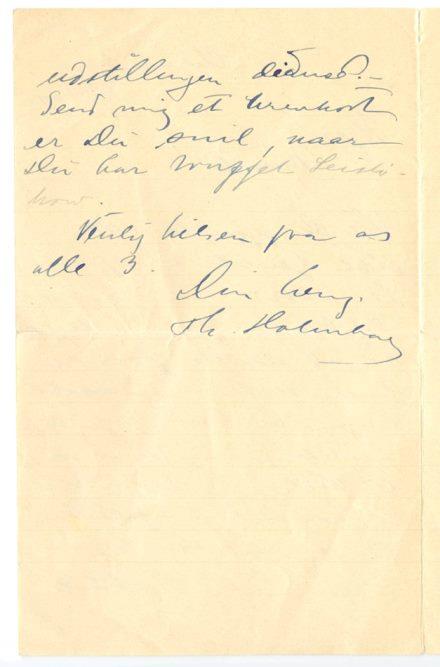 udstillingen
Send mig et brevkort
er Du snil, naar
Du har truffet Leisti-
kow.
Venlig hilsen fra os
alle 3.
Din heng.
Th. Holmboe